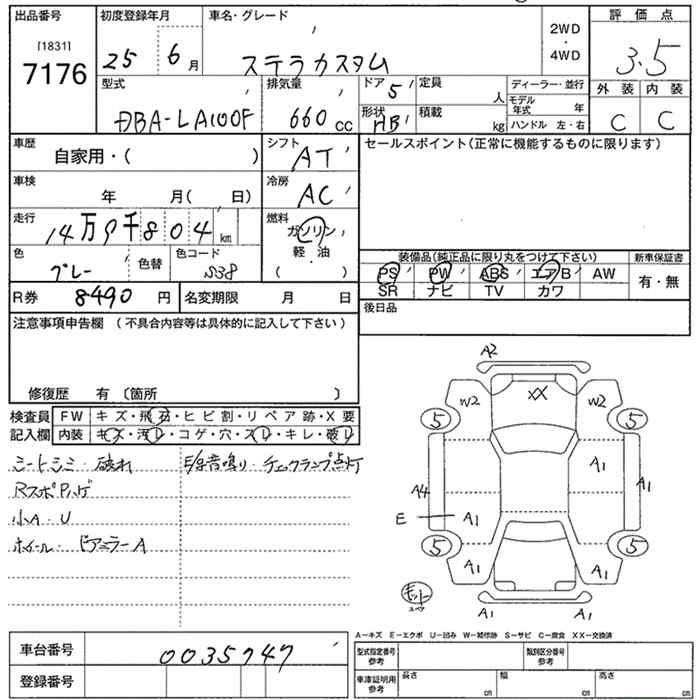 出品番号 初度登録年月 車名・グレード 2WD・4WD 評価点
[1831]
7176 25 6月 ステラカスタム 3.5
型式 排気量 ドア 5 定員 人 ディーラー・並行 外装 内装
DBA-LA100F 660cc 形状 HB 積載 kg モデル年式 年 ハンドル 左・右 C C
車歴 自家用・( ) シフト AT セールスポイント(正常に機能するものに限ります)
車検 年 月( 日) 冷房 AC
走行 14万9千804km 燃料 ガソリン 軽油 ( )
色 グレー 色替 色コード S38
装備品(純正品に限り丸をつけて下さい) 新車保証書
PS PW ABS エアB AW 有・無
SR ナビ TV カワ
R券 8490円 名変期限 月 日 後日品
注意事項申告欄 (不具合内容等は具体的に記入して下さい)
修復歴 有 〔箇所 〕
検査員 FW キズ・飛石・ヒビ割・リペア跡・X要
記入欄 内装 キズ・汚レ・コゲ・穴・スレ・キレ・破レ
シートシミ・破れ E/g音鳴り・チェックランプ点灯
RスポPハゲ
小A・U
ホイール・ドアミラーA
A2
W2 XX W2
5 5
A1
A4 A1
E A1
5 5
A1 A1
キット スペア
A1 A1
A-キズ E-エクボ U-凹み W-補修跡 S-サビ C-腐食 XX-交換済
車台番号 0035747 型式指定番号 参考 類別区分番号 参考
登録番号 車庫証明用 参考 長さ cm 幅 cm 高さ cm